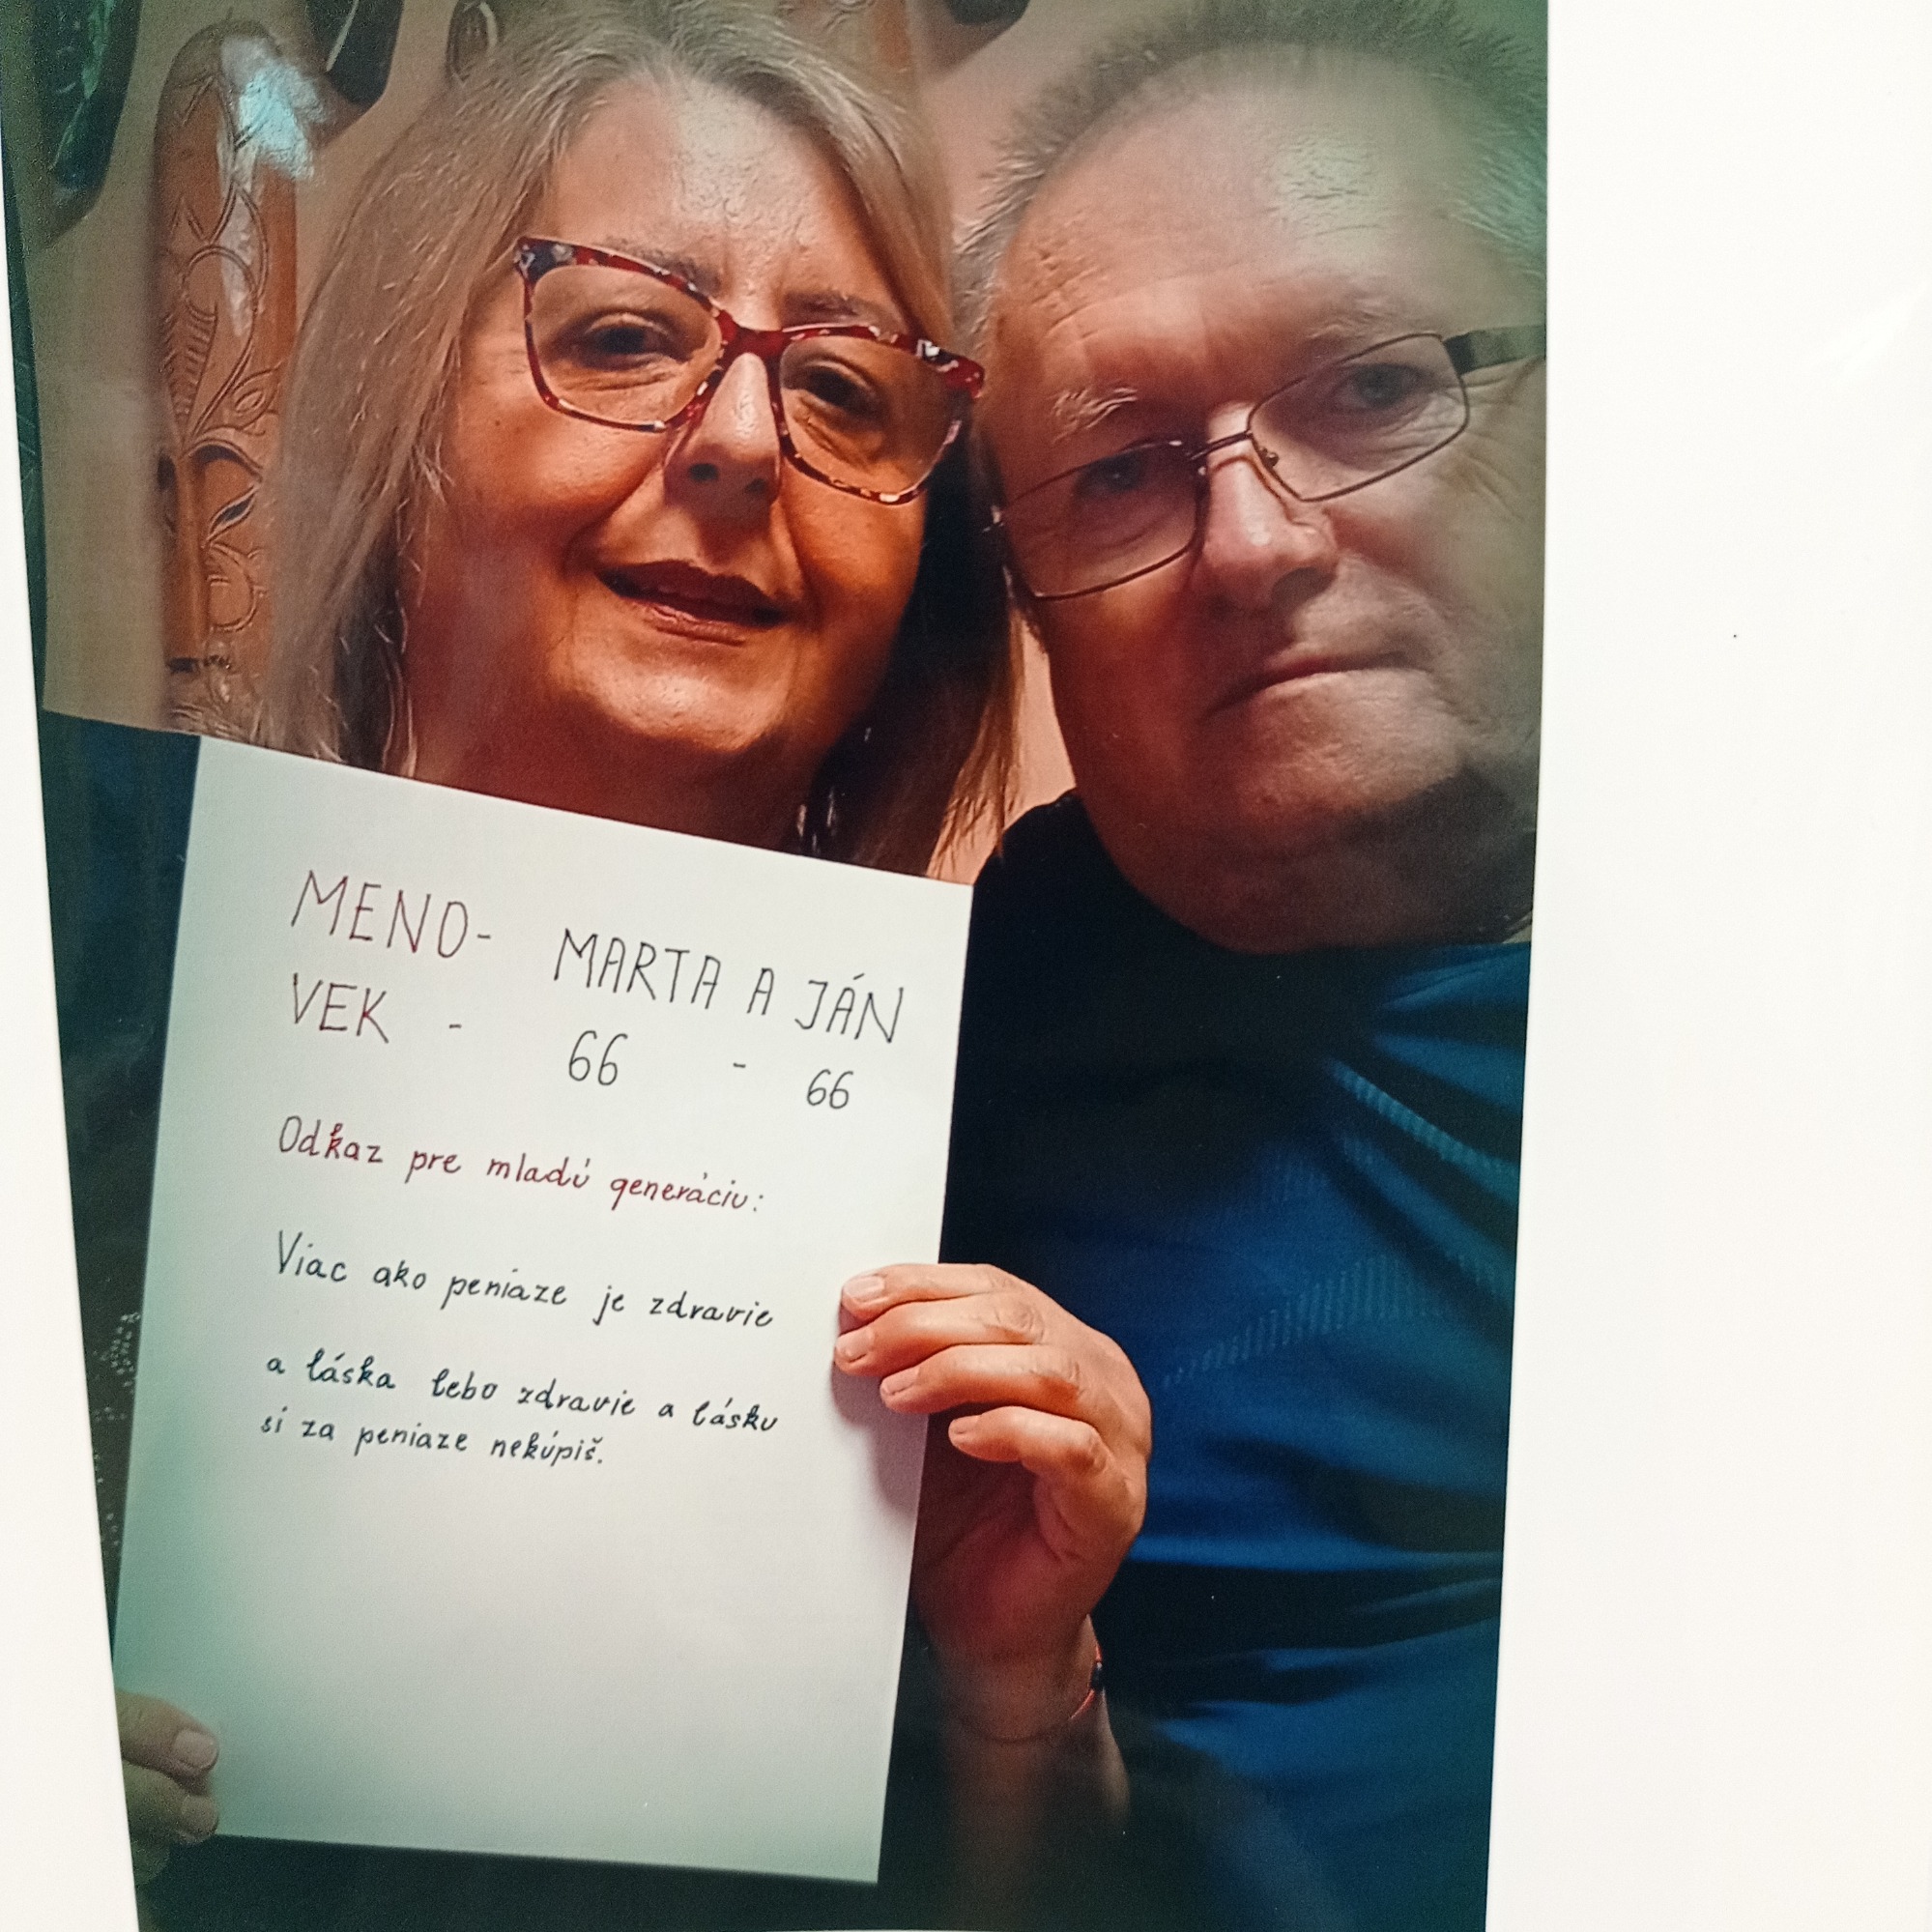 MENO- MARTA A JÁN
VEK - 66 - 66
Odkaz pre mladú generáciu:
Viac ako peniaze je zdravie
a láska lebo zdravie a lásku
si za peniaze nekúpiš.